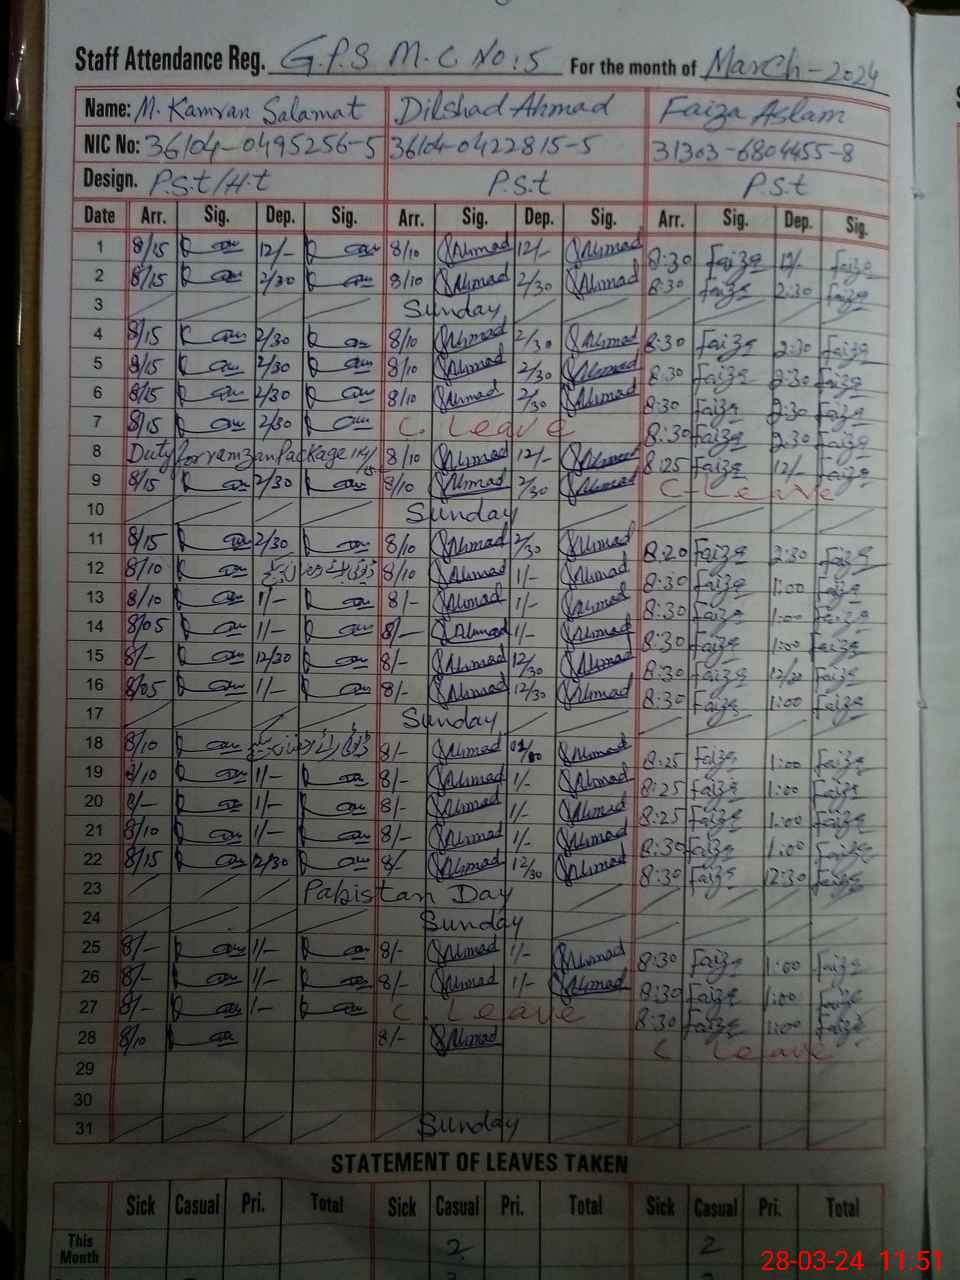 Staff Attendance Reg. G.P.S M.C No:5 For the month of March-2024
Name: M. Kamran Salamat Dilshad Ahmad Faiza Aslam
NIC No: 36104-0495256-5 36104-0422815-5 31303-6804455-8
Design. P.S.t/H.t P.S.t P.S.t
Date Arr. Sig. Dep. Sig. Arr. Sig. Dep. Sig. Arr. Sig. Dep. Sig.
1 8/15 12/- 8/10 Ahmad 12/- Ahmad 8:30 Faiza 12/- Faiza
2 8/15 2/30 8/10 Ahmad 2/30 Ahmad 8:30 Faiza 2:30 Faiza
3 Sunday
4 8/15 2/30 8/10 Ahmad 2/30 Ahmad 8:30 Faiza 2:30 Faiza
5 8/15 2/30 8/10 Ahmad 2/30 Ahmad 8:30 Faiza 2:30 Faiza
6 8/15 2/30 8/10 Ahmad 2/30 Ahmad 8:30 Faiza 2:30 Faiza
7 8/15 2/30 C. Leave 8:30 Faiza 2:30 Faiza
8 Duty for ramzan Package 8/10 Ahmad 12/- Ahmad 8:25 Faiza 12/- Faiza
9 8/15 2/30 8/10 Ahmad 2/30 Ahmad C-Leave
10 Sunday
11 8/15 2/30 8/10 Ahmad 2/30 Ahmad 8:20 Faiza 2:30 Faiza
12 8/10 8/10 Ahmad 1/- Ahmad 8:30 Faiza 1:00 Faiza
13 8/10 1/- 8/- Ahmad 1/- Ahmad 8:30 Faiza 1:00 Faiza
14 8/05 1/- 8/- Ahmad 1/- Ahmad 8:30 Faiza 1:00 Faiza
15 8/- 12/30 8/- Ahmad 12/30 Ahmad 8:30 Faiza Faiza
16 8/05 1/- 8/- Ahmad 12/30 Ahmad 8:30 Faiza 1:00 Faiza
17 Sunday
18 8/10 8/- Ahmad Ahmad 8:25 Faiza 1:00 Faiza
19 8/10 1/- 8/- Ahmad 1/- Ahmad 8:25 Faiza 1:00 Faiza
20 8/- 1/- 8/- Ahmad 1/- Ahmad 8:25 Faiza 1:00 Faiza
21 8/10 1/- 8/- Ahmad 1/- Ahmad 8:30 Faiza 1:00 Faiza
22 8/15 12/30 8/- Ahmad 12/30 Ahmad 8:30 Faiza 12:30 Faiza
23 Pakistan Day
24 Sunday
25 8/- 1/- 8/- Ahmad 1/- Ahmad 8:30 Faiza 1:00 Faiza
26 8/- 1/- 8/- Ahmad 1/- Ahmad 8:30 Faiza 1:00 Faiza
27 8/- 1/- C. Leave 8:30 Faiza 1:00 Faiza
28 8/10 8/- Ahmad C. Leave
29
30
31 Sunday
STATEMENT OF LEAVES TAKEN
Sick Casual Pri. Total Sick Casual Pri. Total Sick Casual Pri. Total
This Month 2 2
28-03-24 11:51